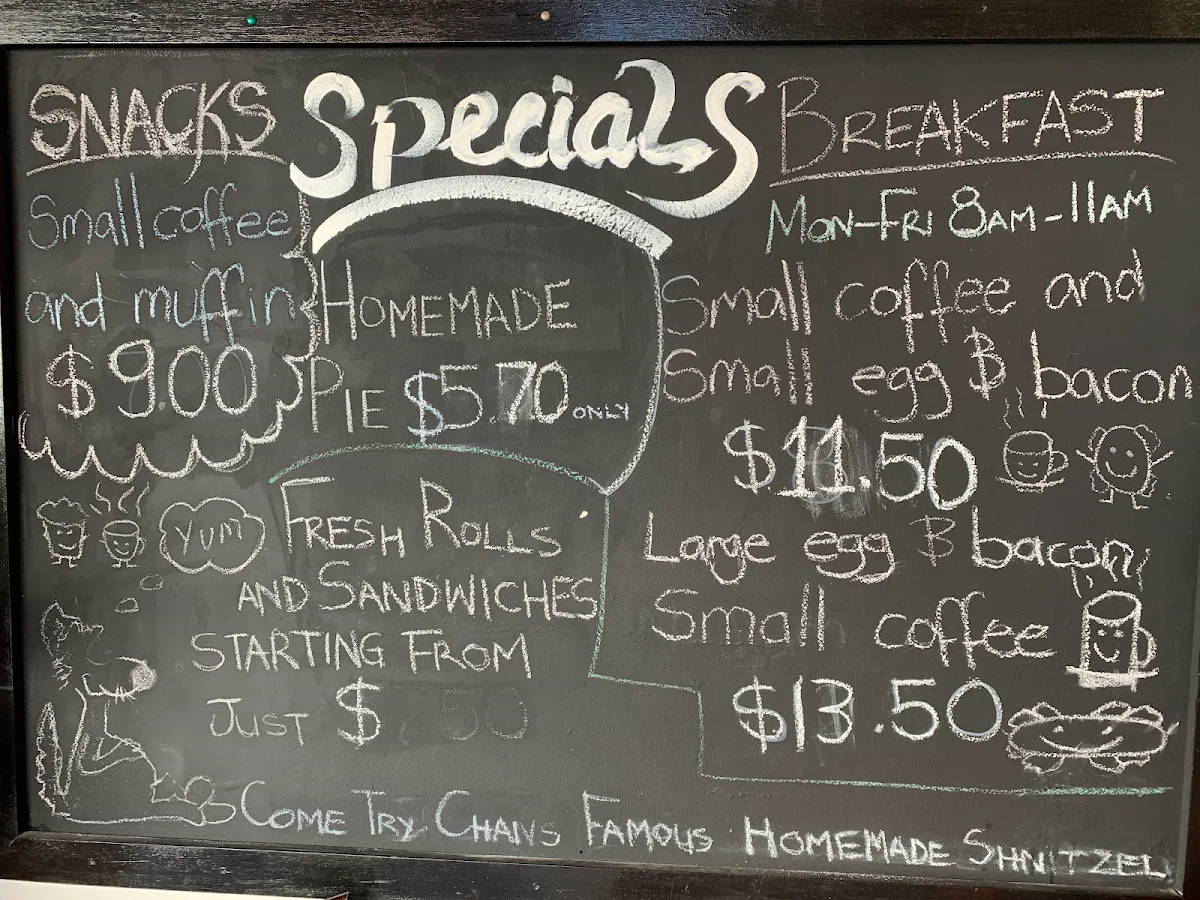 SNACKS
Small coffee
and muffin
$900
YUM
Specials
HOMEMADE
PIE $5.70 ONLY
FRESH ROLLS
AND SANDWICHES
STARTING FROM
JUST $ 50
BREAKFAST
MON-FRI 8AM-11AM
Small coffee and
Small egg B bacon
$11.50
Large egg B bacon
Small coffee
$13.50
COME TRY CHANS FAMOUS HOMEMADE SHNITZEL